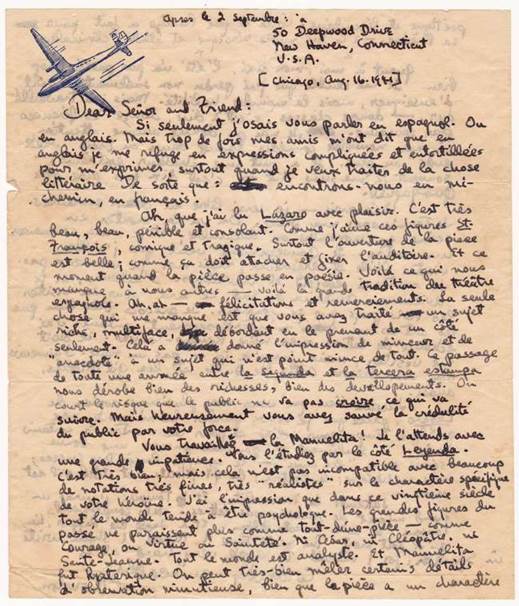 Après le 2 Septembre : à
50 Deepwood Drive
New Haven, Connecticut
U.S.A.
[Chicago, Aug. 16. 1941]
Dear Señor and Friend:
Si seulement j'osais vous parler en espagnol. Ou
en anglais. Mais trop de fois mes amis m'ont dit que en
anglais je me refuge en expressions compliquées et entortillées
pour m'exprimer, surtout quand je veux traiter de la chose
littéraire. De sorte que: encontrons-nous en mi-
chemin, en français.
Ah, que j'ai lu Lázaro avec plaisir. C'est très
beau, beau, pénible et consolant. Comme j'aime ces figures St-
François, comique et tragique. Surtout l'ouverture de la pièce
est belle; comme ça doit attacher et fixer l'auditoire. Et ce
moment quand la pièce passe en poésie. Voilà ce qui nous
manque à nous autres — voilà la grande tradition du théâtre
espagnole. Ah, ah — félicitations et remerciements. La seule
chose qui me manque est que vous avez traité un sujet
riche, multiface, débordant en le prenant de un côté
seulement. Cela a donné l'impression de minceur et de
"anecdote" à un sujet qui n'est point mince du tout. Ce passage
de toute une année entre la segunda et la tercera estampa
nous dérobe bien des richesses, bien des développements. On
court le risque que le public ne va pas croire ce qui va
suivre. Mais heureusement vous avez sauvé la crédulité
du public par votre force.
Vous travaillez la Manuelita! Je l'attends avec
une grande impatience. Vous l'étudiez par le côté Leyenda.
C'est très bien; mais cela n'est pas incompatible avec beaucoup
de notations très fines, très "réalistes" sur le charactère spécifique
de votre héroïne. J'ai l'impression que dans ce vingtième siècle
tout le monde tende à être psychologue. Les grandes figures du
passé ne paraissent plus comme tout-d'une-pièce — comme
Courage, ou Virtue ou Sainteté. Ni César, ni Cléopâtre, ne
Sante-Jeanne. Tout le monde est analyste. Et Manuelita
fut hystérique. On peut très-bien mêler certains détails
d'observation minutieuse, bien que la pièce a un charactère